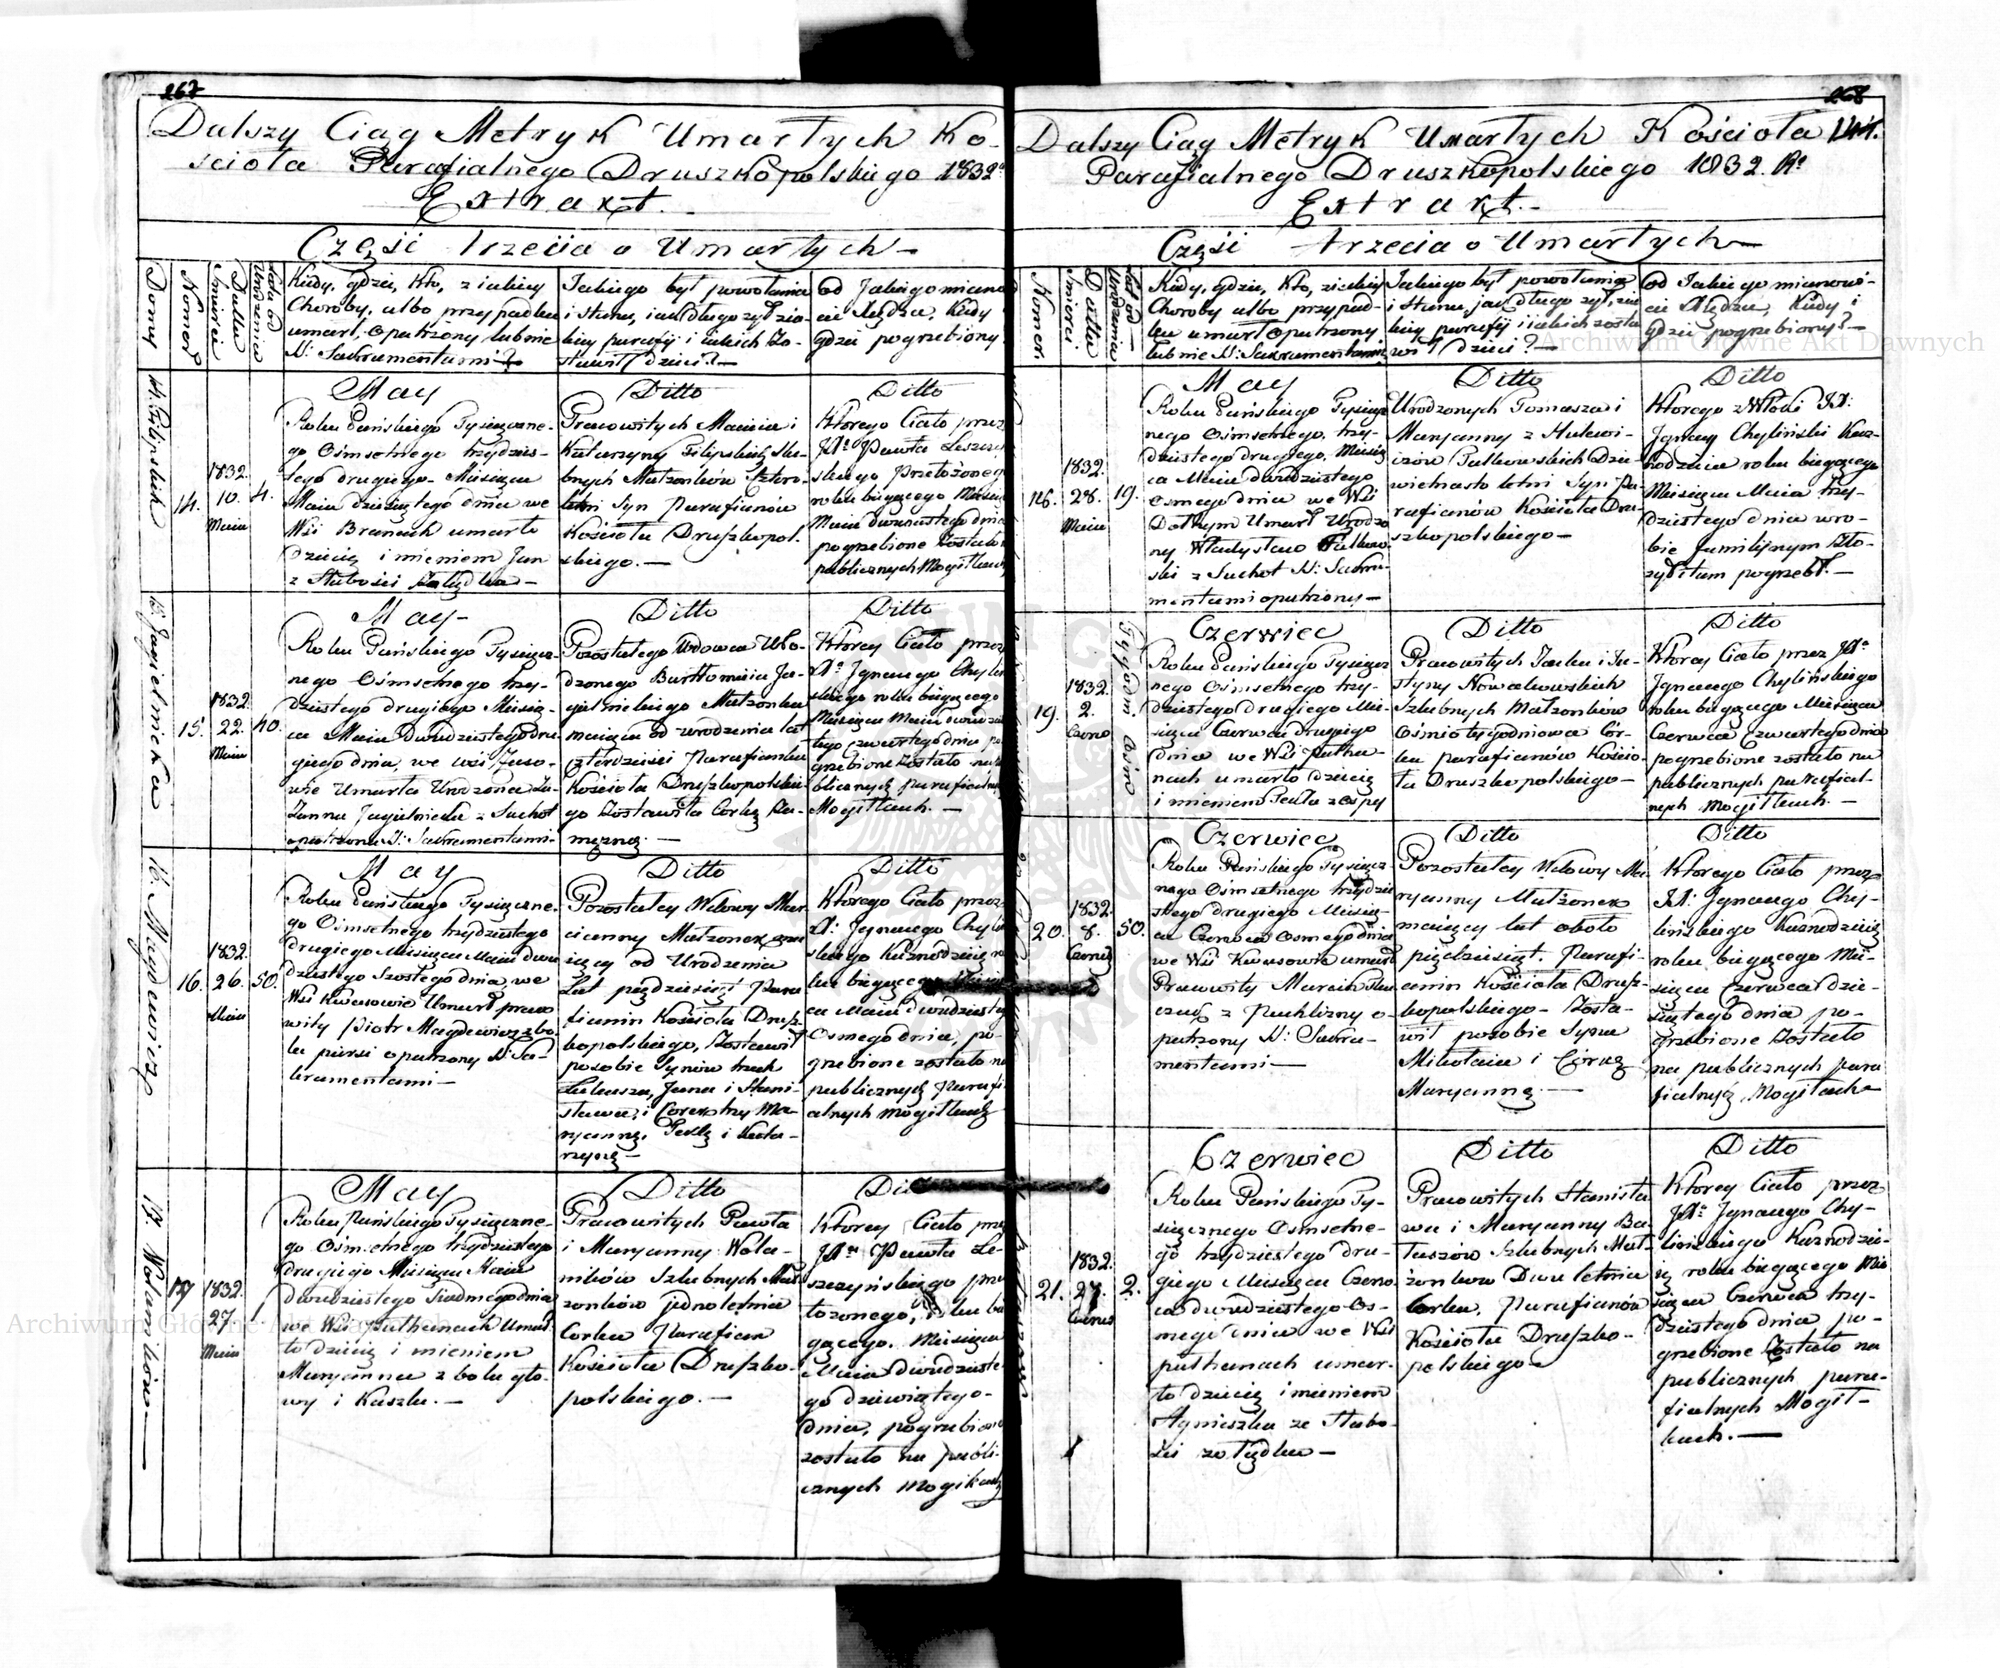 267
Dalszy Ciąg Metryk Umarłych Ko-
ścioła Parafialnego Druszkopolskiego 1832
Extrakt.
Część trzecia o Umarłych
Domy
Numer
Data Śmierci
Lata od Urodzenia
Kiedy, gdzie, kto, z iakiey
Choroby, albo przypadku
umarł, opatrzony lub nie
SS: Sakramentami?
Jakiego był powołania
i stanu, iak długo żył, z ia-
kiey parafij i iakich Zo-
stawił dzieci?
Od Jakiego miano
cie Xiędza, Kiedy
gdzie pogrzebiony
14.
1832.
10.
Maia
4.
May
Roku Pańskiego Tysiączne-
go Ośmsetnego trzydzies-
tego drugiego Miesiąca
Maia dziesiątego dnia we
Wsi Branach umarło
dziecię imieniem Jan
z Słabości Żołądka
Ditto
Pracowitych Macieia i
Katarzyny Filipskich Szlu-
bnych Małżonków Cztero-
letni Syn Parafianów
Kościoła Druszkopol-
skiego.
Ditto
Którego Ciało przez
Pawła Leszczy
skiego Przełożoneg
roku bieżącego Miesiąc
Maia dwunastego dnia
pogrzebione Zostało
publicznych Mogiłkach
15. Jagielnicka
15.
1832.
22.
Maia
40.
May
Roku Pańskiego Tysiącz-
nego Ośmsetnego trzy-
dziestego drugiego Miesią-
ca Maia Dwudziestego dru-
giego dnia, we wsi
Umarła Urodzona Zu-
zanna Jagielnicka z Suchot
opatrzona SS: Sakramentami
Ditto
Pozostałego Wdowca Uro-
dzonego Bartłomieia Ja-
gielnickiego Małżonka
maiąca od urodzenia lat
czterdzieści Parafianka
Kościoła Druszkopolskie-
go Zostawiła Corkę
Ditto
Którey Ciało przez
Ignacego Chyliń
skiego roku bieżącego
Miesiąca Maia dwudzie
tego czwartego dnia po
grzebione Zostało na pu
blicznych parafialnych
Mogiłkach.
16. Magdewicz
16.
1832.
26.
Maia
50.
May
Roku Pańskiego Tysiączne-
go Ośmsetnego trzydziestego
drugiego Miesiąca Maia dwu
dziestego Szóstego dnia we
Wsi Kwasowie Umarł praco
wity Piotr Magdewicz z bo-
lu piersi opatrzony SS: Sa-
kramentami
Ditto
Pozostałey Wdowy Mar-
cianny Małżonek, ma
iący od Urodzenia
Lat pięćdziesiąt Para
fianin Kościoła Drusz-
kopolskiego, Zostawił
po sobie Synów trzech
Łukasza, Jana i Stani-
sława, i Corek trzy Ma-
ryannę, Teklę i Kata-
rzynę
Ditto
Którego Ciało przez
X: Ignacego Chyli
skiego Kaznodzieię ro
ku bieżącego Miesią
ca Maia dwudziestego
Osmego dnia, po-
grzebione zostało na
publicznych Parafi
alnych mogiłkach
17. Wolaników
17
1832.
27
Maia
1
May
Roku Pańskiego Tysiączne-
go Ośmsetnego trzydziestego
drugiego Miesiąca Maia
dwudziestego Siódmego dnia
we Wsi Putkanach Umar
ło dziecię imieniem
Maryanna z bolu gło-
wy i Kaszlu.
Ditto
Pracowitych Pawła
i Maryanny Wola-
ników Szlubnych Mał-
zonków jednoletnia
Corka Parafian
Kościoła Druszko-
polskiego.
Ditto
Którey Ciało prze
Pawła Le-
szczyńskiego prze
łożonego, roku bie
żącego, Miesiąca
Maia dwudzieste-
go dziewiątego
dnia, pogrzebione
zostało na publi-
cznych Mogiłkach
268
144.
Dalszy Ciąg Metryk Umarłych Kościoła
Parafialnego Druszkopolskiego 1832. Ro
Extrakt.
Część trzecia o Umarłych
Numer.
Data Śmierci
Lat od Urodzenia
Kiedy, gdzie, kto, z iakiey
Choroby albo przypad-
ku umarł opatrzony
lub nie SS: Sakramentami
Jakiego był powołania
i stanu, jak długo żył, z ia-
kiey parafij i iakich zosta
wił dzieci?
Od Jakiego mianowi-
cie Xiędza, Kiedy i
gdzie pogrzebiony?
1832.
28.
Maia
19.
May
Roku Pańskiego Tysiącz-
nego Ośmsetnego, trzy-
dziestego drugiego, Miesią
ca Maia dwudziestego
osmego dnia we Wsi
Umarł Urodzo
ny Władysław Falkow-
ski z Suchot SS: Sakra-
mentami opatrzony
Ditto
Urodzonych Tomasza i
Maryanny z Hulewi-
czów Falkowskich Dzie-
więtnasto letni Syn Pa-
rafianów Kościoła Dru-
szkopolskiego
Ditto
Którego Zwłoki
Ignacy Chyliński Kaz-
nodzieia roku bieżącego
Miesiąca Maia trzy-
dziestego dnia w gro-
bie familijnym Zło-
żył i tam pogrzebł.
19.
1832.
2.
Tygodni Osim
Czerwiec
Roku Pańskiego Tysiącz
nego Ośmsetnego trzy-
dziestego drugiego Mie-
siąca Czerwca drugiego
dnia we Wsi Putka-
nach umarło dziecię
imieniem Tekla z ospy
Ditto
Pracowitych Jacka i Ju-
styny Nowakowskich
Szlubnych Małżonków
Ośmiotygodniowa Cór-
ka parafianów Kościo-
ła Druszkopolskiego
Ditto
Którey Ciało przez
Ignacego Chylińskiego
roku bieżącego Miesiąca
Czerwca Czwartego dnia
pogrzebione zostało na
publicznych parafial-
nych Mogiłkach.
20.
1832.
8.
50.
Czerwiec
Roku Pańskiego Tysiącz-
nego Ośmsetnego trzydzie
stego drugiego Miesią-
ca Czerwca Osmego dnia
we Wsi Kwasowie umarł
Pracowity Marcin
z Puchliny o-
patrzony SS: Sakra-
mentami
Ditto
Pozostałey Wdowy Ma-
ryanny Małżonek
maiący lat około
pięćdziesiąt. Parafi-
anin Kościoła Drusz-
kopolskiego Zosta-
wił po sobie Syna
Mikołaia i Córkę
Maryannę.
Ditto
Którego Ciało przez
Ignacego Chy-
lińskiego Kaznodzieię
roku bieżącego Mie-
siąca Czerwca dzie-
siątego dnia po-
grzebione Zostało
na publicznych para
fialnych Mogiłkach
21.
1832.
27.
2.
Czerwiec
Roku Pańskiego Ty-
siącznego Ośmsetne-
go trzydziestego dru-
giego Miesiąca Czerw
ca dwudziestego Os-
mego dnia we Wsi
putkanach umar-
ło dziecię imieniem
Agnieszka ze Słabo-
ści żołądka
Ditto
Pracowitych Stanisła
wa i Maryanny Ba-
tuszów Szlubnych Mał-
żonków Dwu letnia
Corka, Parafianów
Kościoła Druszko-
polskiego
Ditto
Którey Ciało przez
Ignacego Chy-
lińskiego Kaznodzie-
ię roku bieżącego Mie
siąca Czerwca trzy-
dziestego dnia po-
grzebione Zostało na
publicznych para-
fialnych Mogił-
kach.
Archiwum Główne Akt Dawnych
Archiwum Główne Akt Dawnych